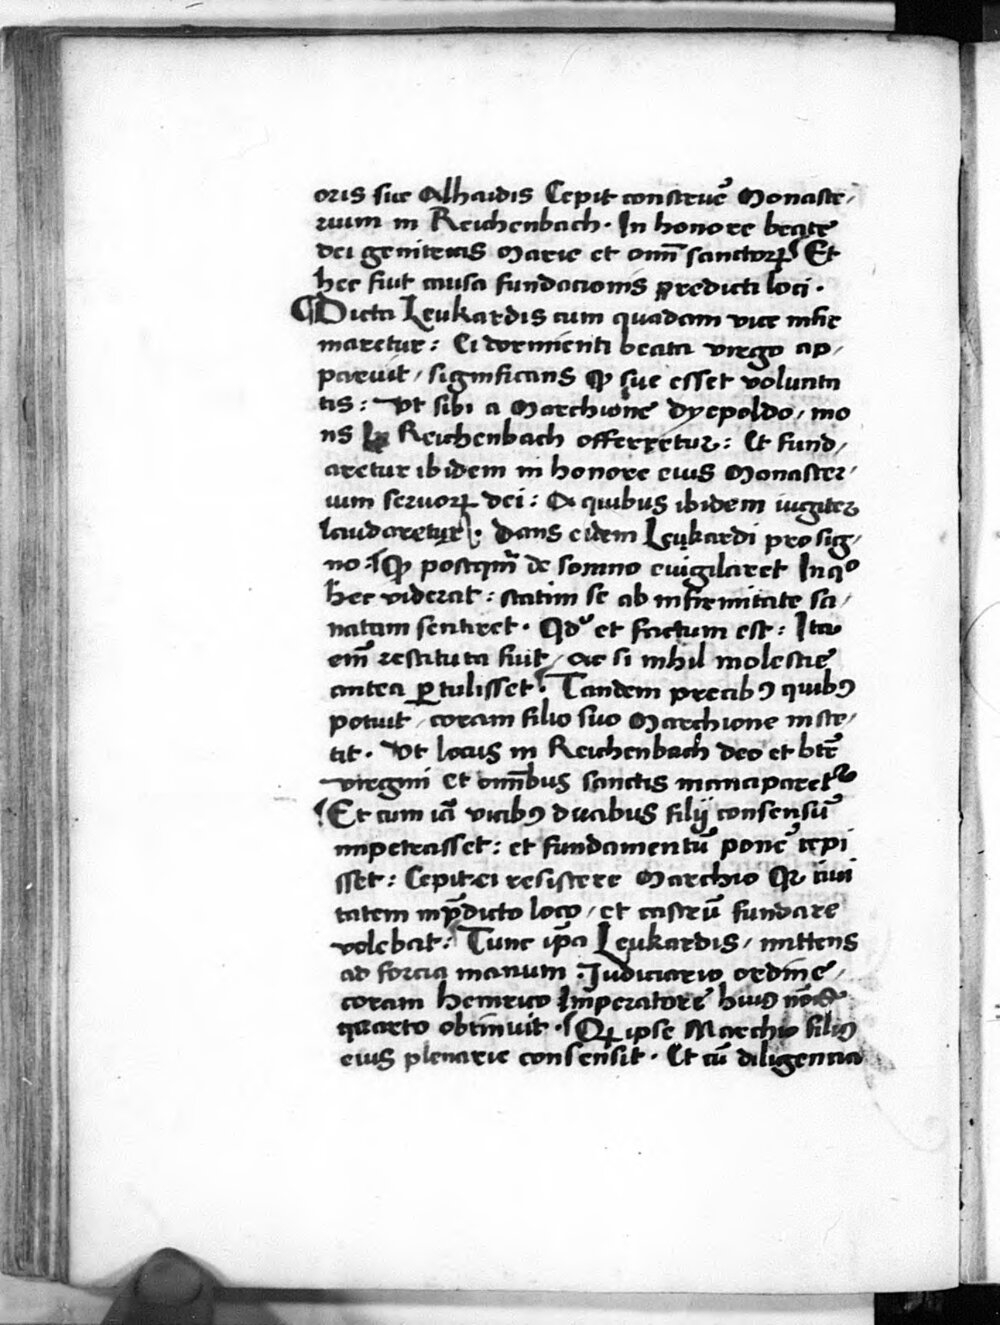 oris sue Alhaidis Cepit construe͂ Monaste/
rium in Reichenbach· In honore beate
dei genitricis Marie et om̄ sanctoꝝ Et
hec fuit causa fundacionis predicti loci·
¶Dicta Leukardis cum quadam vice infir
maretur: Ei dormienti beata virgo ap/
paruit/ significans ꝙ sue esset volunta
tis: vt sibi a Marchione dyepoldo/ mo
ns Reichenbach offerretur: Et fund/
aretur ibidem in honore eius Monaster/
ium seruoꝝ dei: A quibus ibidem iugiter
laudaretur· Dans eidem Leukardi pro sig/
no ꝙ postqm̄ de somno euigilaret In qº
hec viderat: statim se ab infirmitate sa/
natam sentiret· Qdͥ et factum est: Ita
em̄ restituta fuit/ ac si nihil molestie
antea ꝑtulisset· Tandem precibꝰ quibꝰ
potuit/ coram filio suo Marchione inste/
tit· Vt locus in Reichenbach deo et bte͂
virgini et om̄ibus sanctis manciparetᷣ
Et cum iā vicibꝰ duabus filij consensū
impetrasset: et fundamentū pone͂ cepi
sset: Cepit ei resistere Marchio Qꝛ ciui
tatem in p̄dicto loco/ et castrū fundare
volebat: Tunc ip̄a Leukardis/ mittens
ad forcia manum· Judiciario ordine/
coram Henrico Imperatore huiꝰ nōis
quarto obtinuit· Qꝛ ipse Marchio filiꝰ
eius plenarie consensit· Et cū diligencia